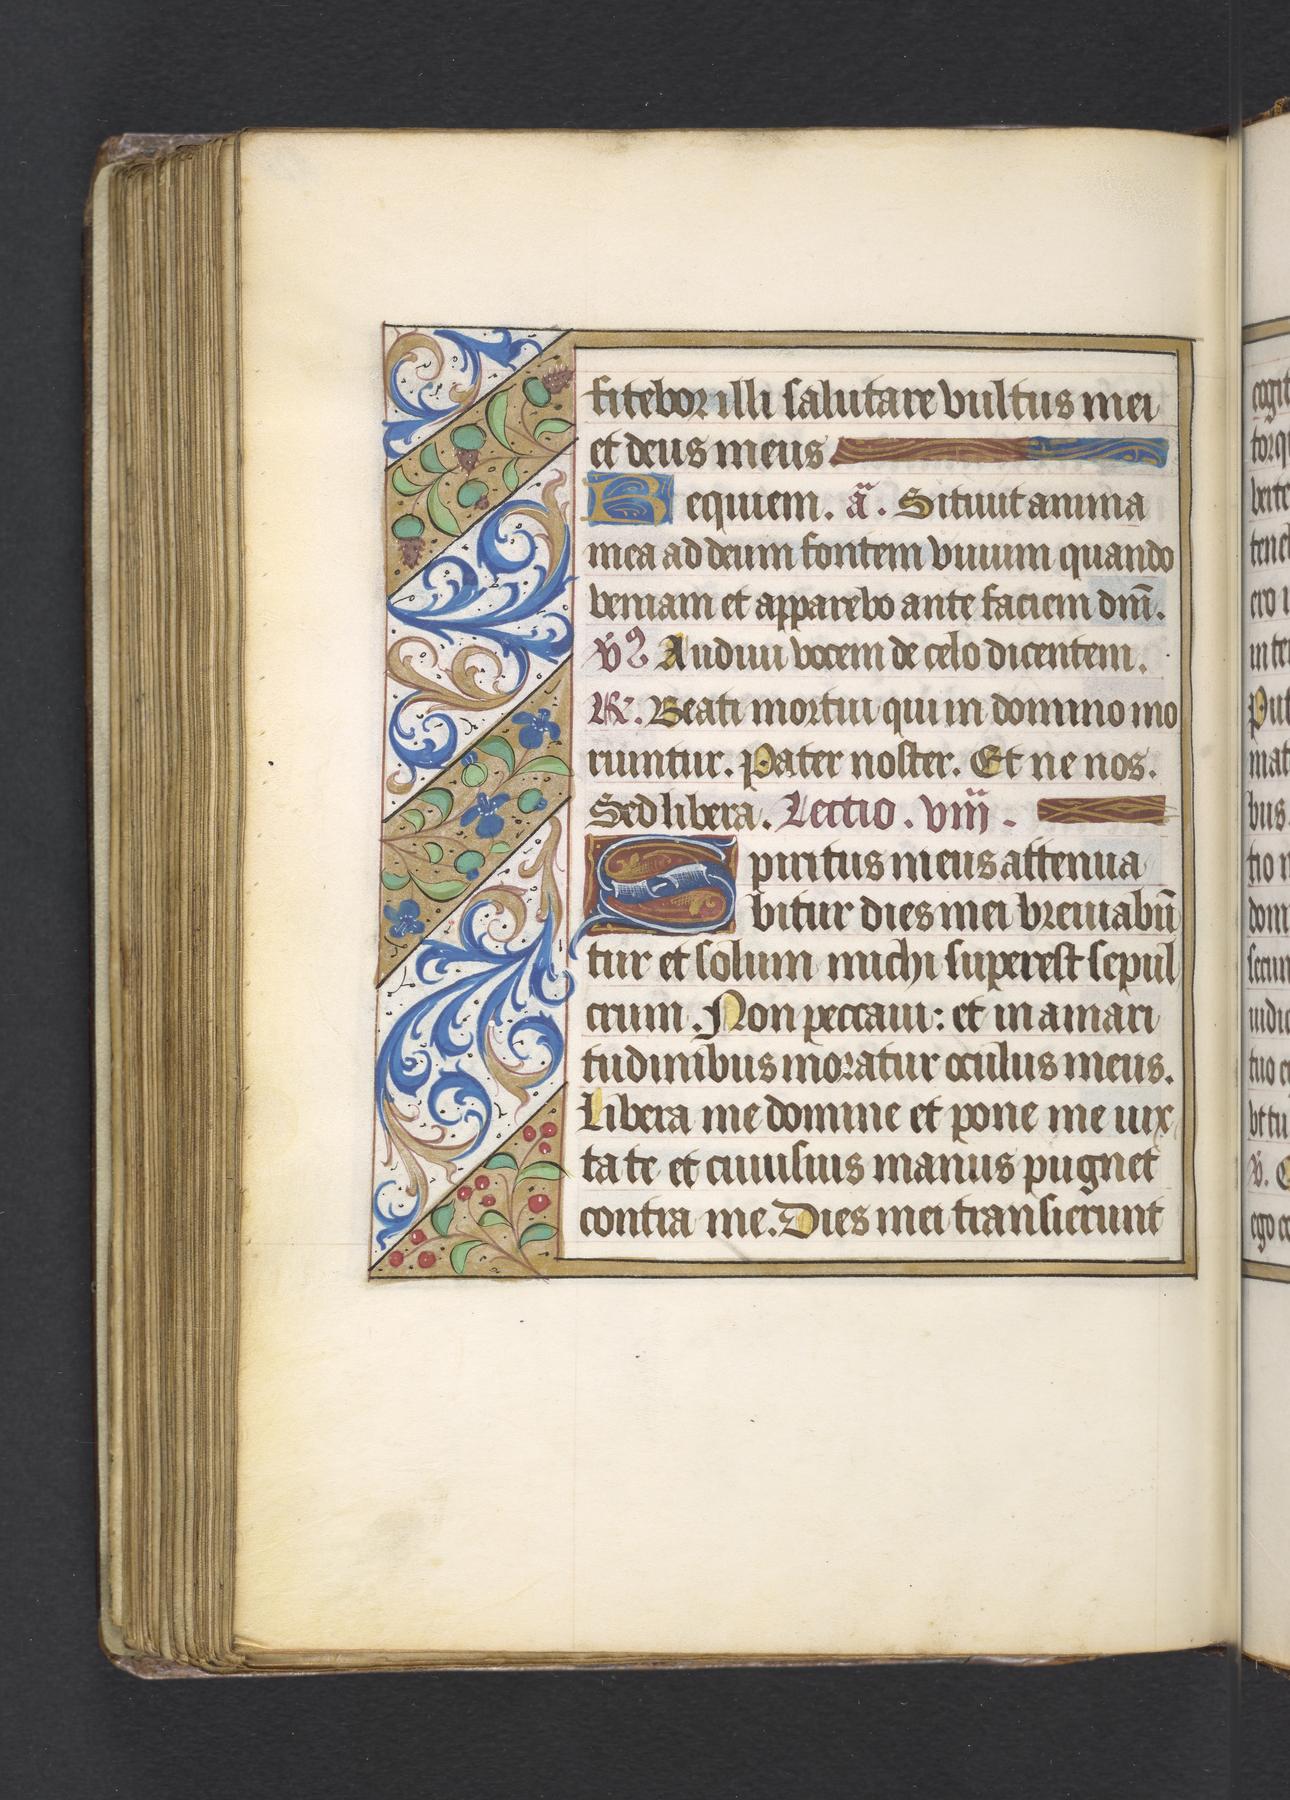 fitebor illi salutare vultus mei
et deus meus
Requiem. ā. Sitiuit anima
mea ad deum fontem viuum quando
veniam et apparebo ante faciem dm̄.
v̄ꝰ Audiui vocem de celo dicentem.
℟. Beati mortui qui in domino mo
riuntur. Pater noster. Et ne nos.
Sed libera. Lectio. viii.
Spiritus meus attenua
bitur dies mei breuiabū
tur et solum michi superest sepul
crum. Non peccaui: et in amari
tudinibus moratur oculus meus.
Libera me domine et pone me iux
ta te et cuiusuis manus pugnet
contra me. Dies mei transierunt
cogit
torqu
tene
ero i
in te
Put
mat
bus.
tio n
dom
secun
iudic
tuo
vt tu
v̄.
ego